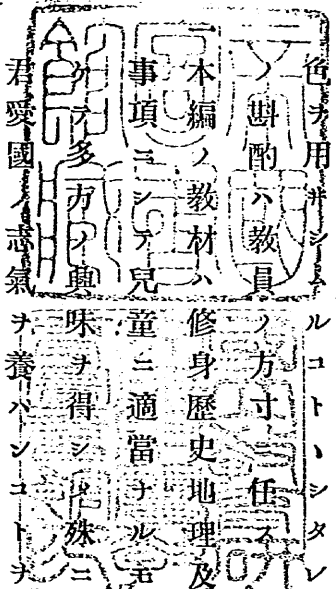 色ヲ用井シムルコトヽシタレ
ノ斟酌ハ教員ノ方寸ニ任ス
一本編ノ教材ハ修身歷史地理及
事項ニシテ兒童ニ適當ナルモ
ケテ多方ノ興味ヲ得シメ殊ニ
君愛國ノ志氣ヲ養ハンコトヲ